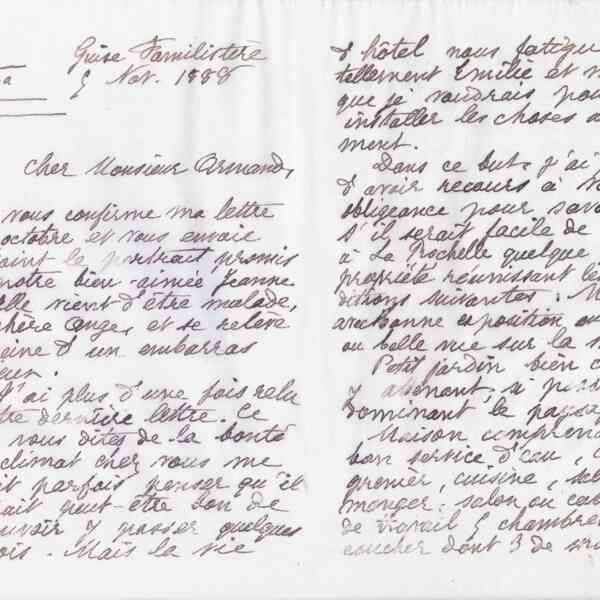 Guise Familistère
5 Nov. 1888
Cher Monsieur Armand,
vous confirme ma lettre
octobre et vous envoie
le portrait promis
notre bien-aimée Jeanne
Elle vient d'être malade,
chère ange, et se relève
eine d'un embarras
J'ai plus d'une fois relu
tre dernière lettre. Ce
vous dites de la bonté
climat chez vous me
it parfois penser qu'il
ait peut-être bon de
ouvoir y passer quelques
ois. Mais la vie
d'hôtel nous fatigu
tellement Emilie et
que je voudrais pou
installer les choses a
ment.
Dans ce but, j'ai
d'avoir recours à
obligeance pour savo
s'il serait facile de
à La Rochelle quelque
propriété réunissant les
ditions suivantes: M
avec bonne exposition ou
ou belle vue sur la
Petit jardin bien
y attenant, si poss
dominant le paysa
Maison comprena
bon service d'eau,
grenier, cuisine,
manger, salon ou cab
de travail 5 chambre
coucher dont 3 de